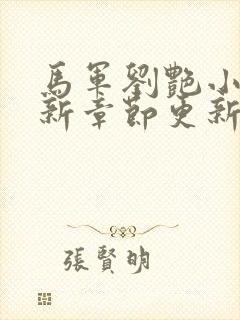 馬軍劉艷小
新章節更新
張賢明